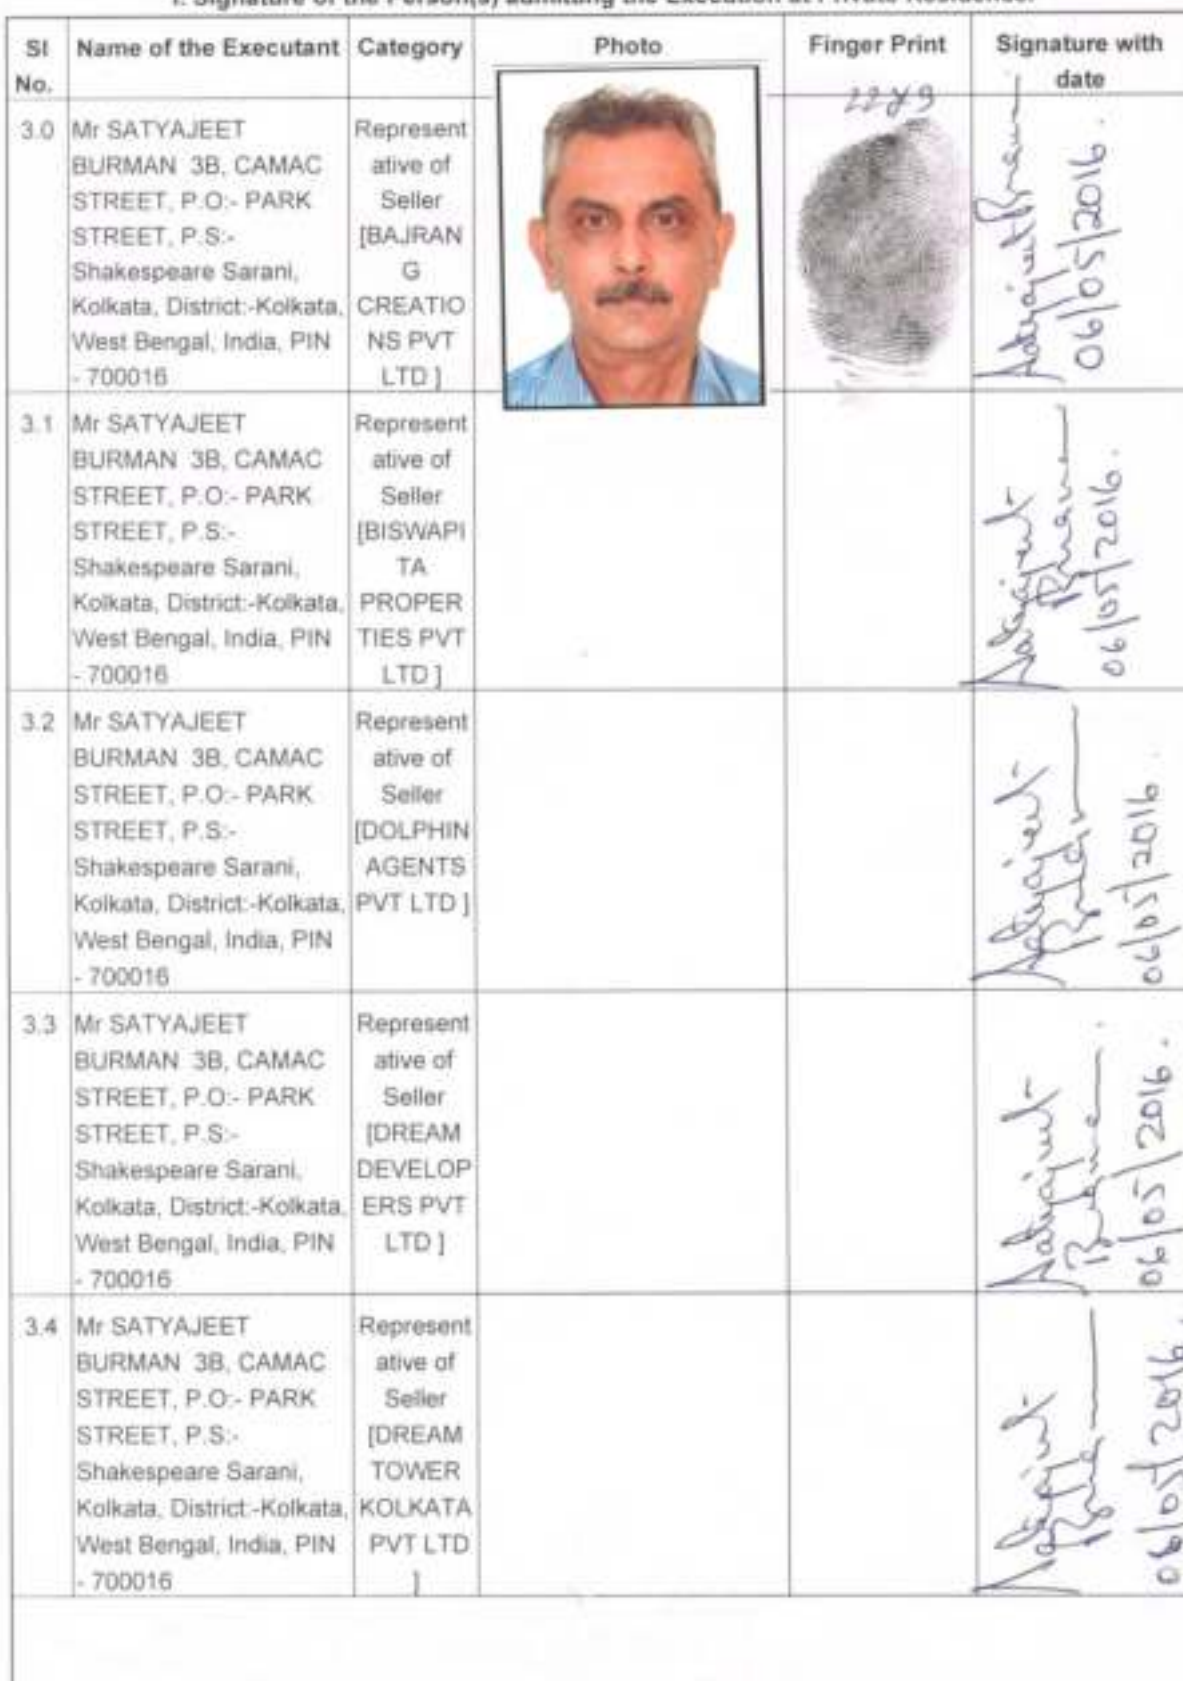 I. Signature of the Person(s) admitting the Execution at Private Residence.
Sl No.
Name of the Executant
Category
Photo
Finger Print
Signature with date
3.0
Mr SATYAJEET
BURMAN 3B, CAMAC
STREET, P.O:- PARK
STREET, P.S:-
Shakespeare Sarani,
Kolkata, District:-Kolkata,
West Bengal, India, PIN
- 700016
Represent
ative of
Seller
[BAJRAN
G
CREATIO
NS PVT
LTD ]
Satyajeet Burman
06/05/2016.
3.1
Mr SATYAJEET
BURMAN 3B, CAMAC
STREET, P.O:- PARK
STREET, P.S:-
Shakespeare Sarani,
Kolkata, District:-Kolkata,
West Bengal, India, PIN
- 700016
Represent
ative of
Seller
[BISWAPI
TA
PROPER
TIES PVT
LTD ]
Satyajeet
Burman
06/05/2016.
3.2
Mr SATYAJEET
BURMAN 3B, CAMAC
STREET, P.O:- PARK
STREET, P.S:-
Shakespeare Sarani,
Kolkata, District:-Kolkata,
West Bengal, India, PIN
- 700016
Represent
ative of
Seller
[DOLPHIN
AGENTS
PVT LTD ]
Satyajeet
Burman
06/05/2016.
3.3
Mr SATYAJEET
BURMAN 3B, CAMAC
STREET, P.O:- PARK
STREET, P.S:-
Shakespeare Sarani,
Kolkata, District:-Kolkata,
West Bengal, India, PIN
- 700016
Represent
ative of
Seller
[DREAM
DEVELOP
ERS PVT
LTD ]
Satyajeet
Burman.
06/05/2016.
3.4
Mr SATYAJEET
BURMAN 3B, CAMAC
STREET, P.O:- PARK
STREET, P.S:-
Shakespeare Sarani,
Kolkata, District:-Kolkata,
West Bengal, India, PIN
- 700016
Represent
ative of
Seller
[DREAM
TOWER
KOLKATA
PVT LTD
]
Satyajeet
Burman
06/05/2016.